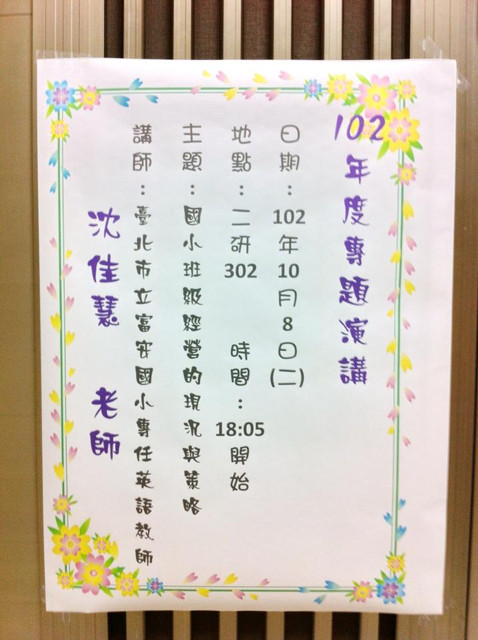 102年度專題演講
日期：102年10月8日(二)
地點：二研302 時間：18:05開始
主題：國小班級經營的現況與策略
講師：臺北市立富安國小專任英語教師
沈佳慧 老師